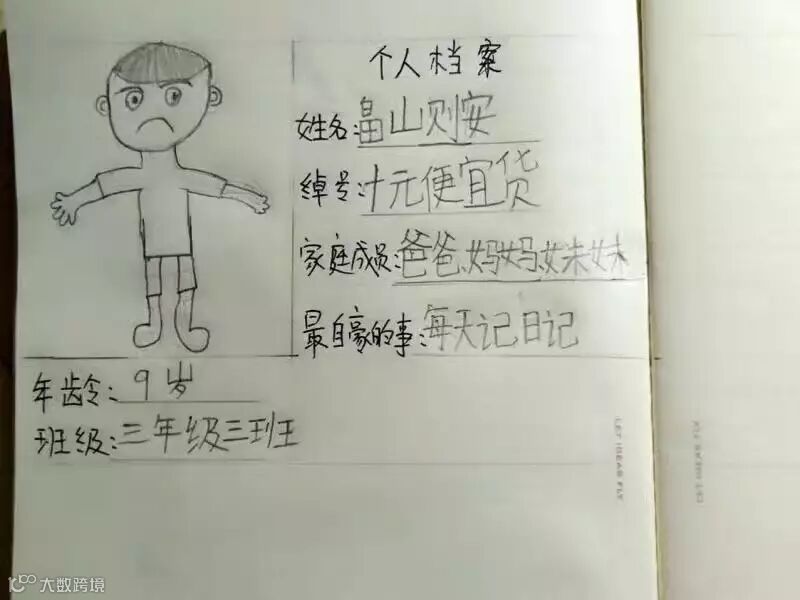 个人档案
姓名:畠山则安
绰号:十元便宜货
家庭成员:爸爸、妈妈、妹妹
最自豪的事:每天记日记
年龄:9岁
班级:三年级三班
LET IDEAS FLY
大数跨境